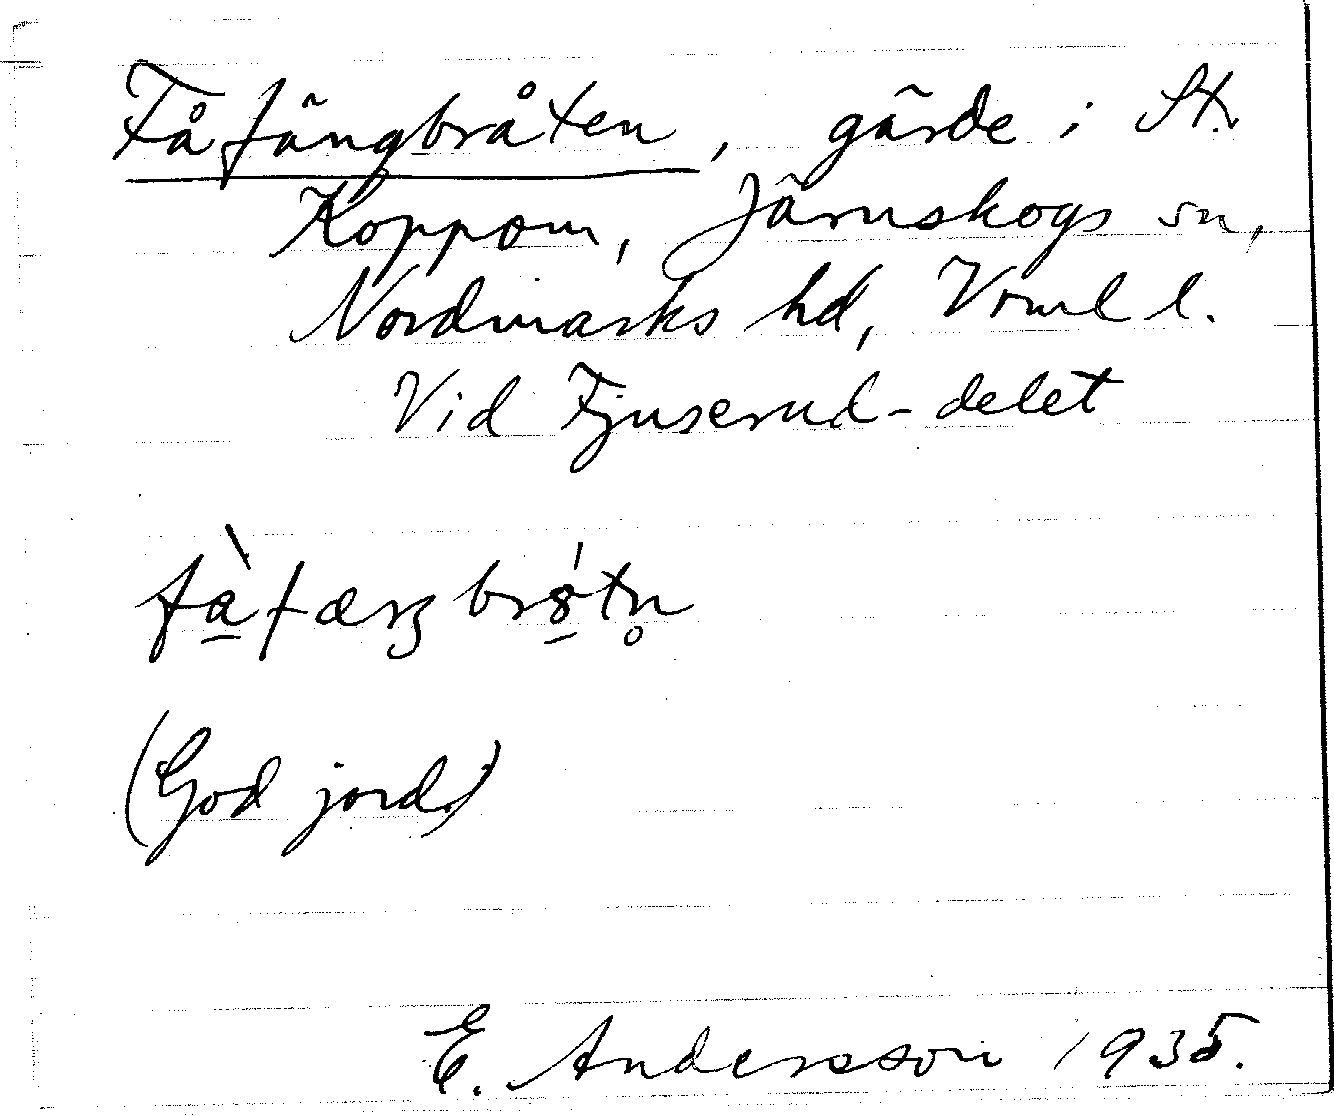 Fåfängbråten, gärde i St.
Koppom, Järnskogs sn,
Nordmarks hd, Vrml l.
Vid Fjuserud-delet
fàfæŋbrótn̥
(God jord.)
E. Andersson 1935.